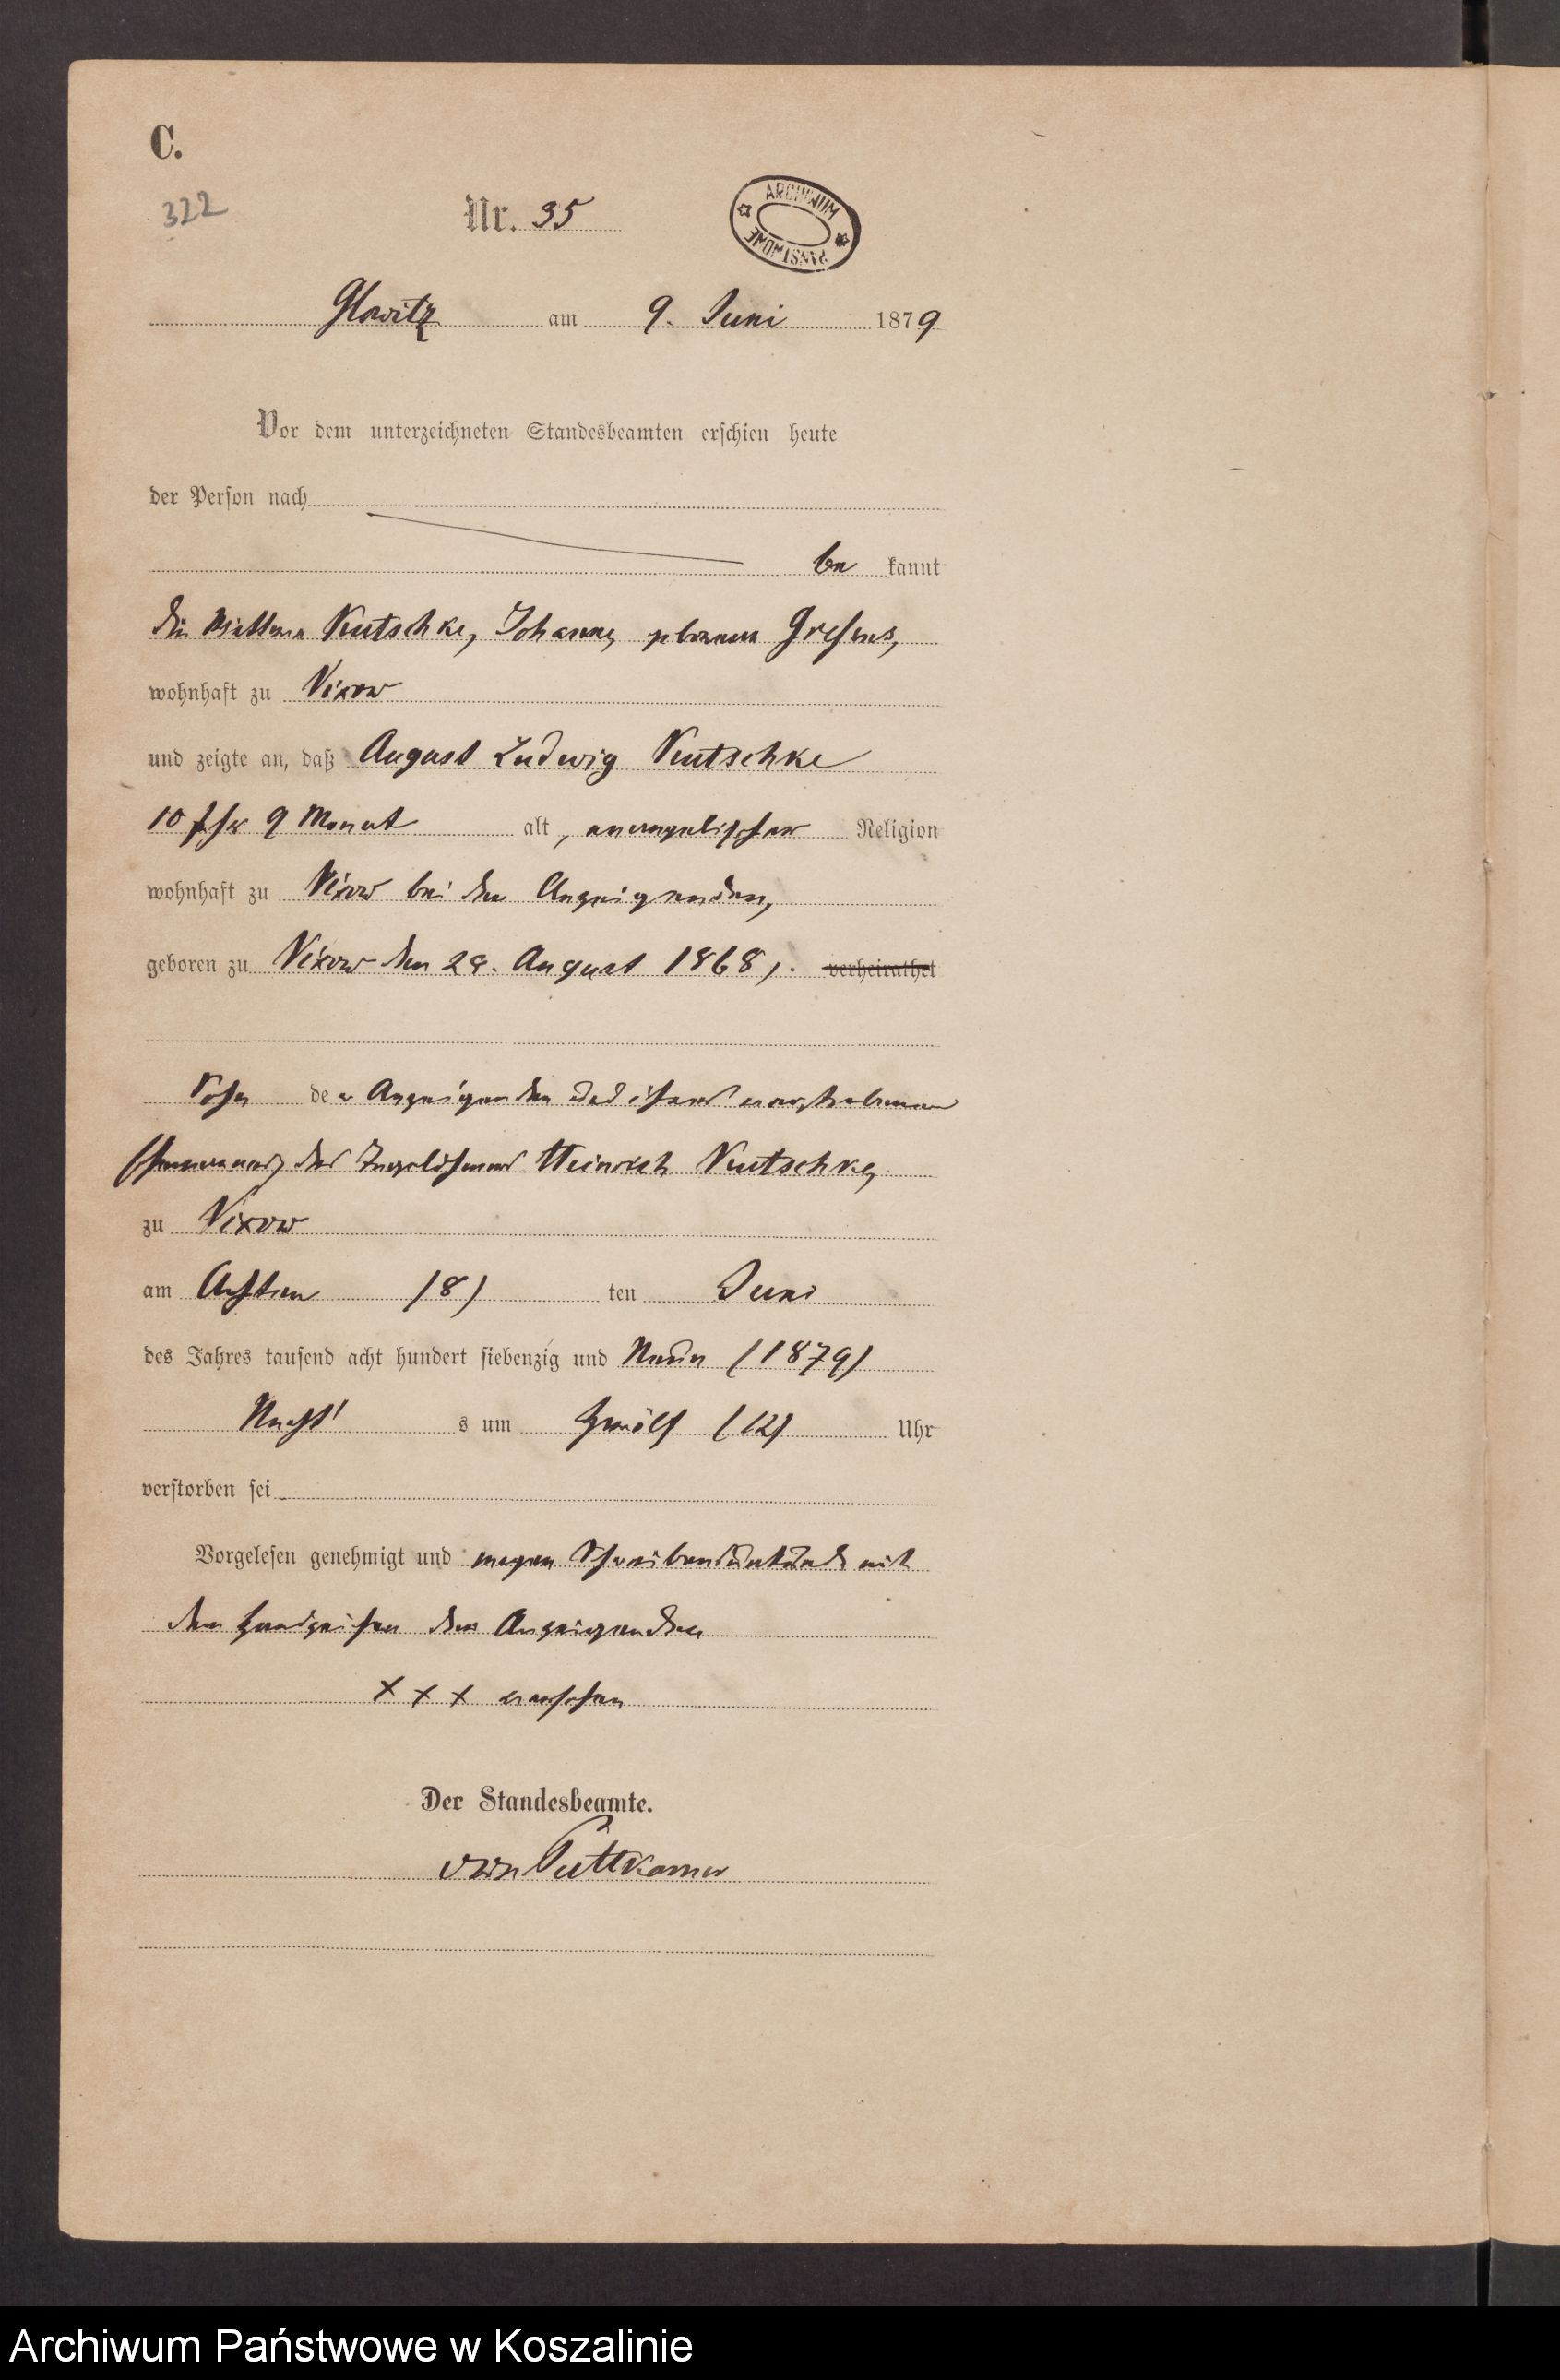 C.
322
Nr. 35
ARCHIWUM PAŃSTWOWE
Glowitz am 9. Juni 1879
Vor dem unterzeichneten Standesbeamten erschien heute
der Person nach
be kannt
die Wittwe Kutschke, Johanne, geborene
wohnhaft zu Vixow
und zeigte an, daß August Ludwig Kutschke
10 Jahr 9 Monat alt, evangelischer Religion
wohnhaft zu Vixow bei der Anzeigenden,
geboren zu Vixow den August 1868, verheirathet
Sohn der Anzeigenden und ihres verstorbenen
Ehemannes, des Heinrich Kutschke,
zu Vixow
am Achten (8) ten Juni
des Jahres tausend acht hundert siebenzig und Neun (1879)
Nacht's um Zwölf (12) Uhr
verstorben sei
Vorgelesen genehmigt und wegen Schreibensunkunde mit
den Handzeichen der Anzeigenden
x x x versehen
Der Standesbeamte.
von Puttkamer
Archiwum Państwowe w Koszalinie